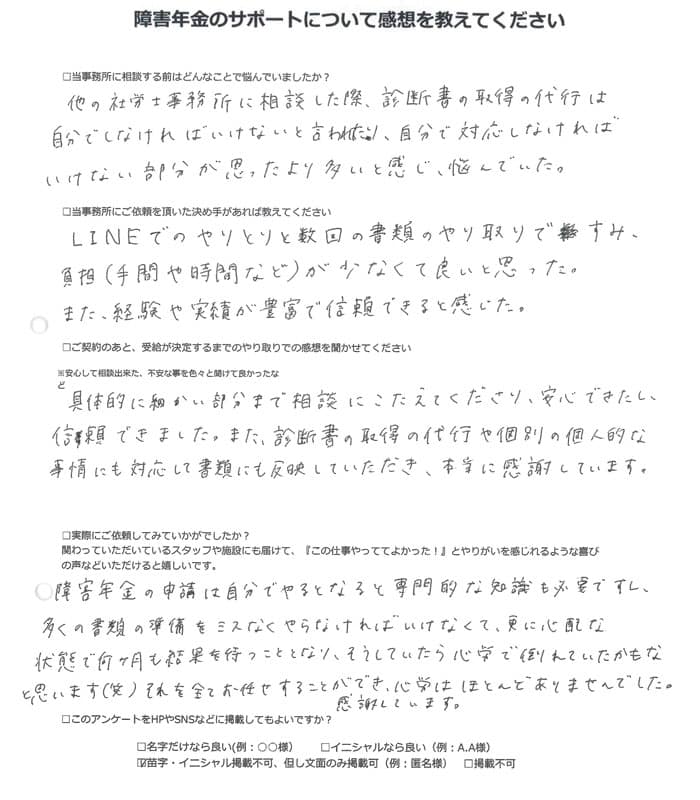 障害年金のサポートについて感想を教えてください
□当事務所に相談する前はどんなことで悩んでいましたか？
他の社労士事務所に相談した際、診断書の取得の代行は
自分でしなければいけないと言われたり、自分で対応しなければ
いけない部分が思ったより多いと感じ、悩んでいた。
□当事務所にご依頼を頂いた決め手があれば教えてください
LINEでのやりとりと数回の書類のやり取りですみ、
負担(手間や時間など)が少なくて良いと思った。
また、経験や実績が豊富で信頼できると感じた。
□ご契約のあと、受給が決定するまでのやり取りでの感想を聞かせてください
※安心して相談出来た、不安な事を色々と聞けて良かったな
ど
具体的に細かい部分まで相談にこたえてくださり、安心できたし、
信頼できました。また、診断書の取得の代行や個別の個人的な
事情にも対応して書類にも反映していただき、本当に感謝しています。
□実際にご依頼してみていかがでしたか？
関わっていただいているスタッフや施設にも届けて、『この仕事やっててよかった！』とやりがいを感じれるような喜び
の声などいただけると嬉しいです。
障害年金の申請は自分でやるとなると専門的な知識も必要ですし、
多くの書類の準備をミスなくやらなければいけなくて、更に心配な
状態で何ヶ月も結果を待つこととなり、そうしていたら心労で倒れていたかもな
と思います(笑)それを全てお任せすることができ、心労はほとんどありませんでした。
感謝しています。
□このアンケートをHPやSNSなどに掲載してもよいですか？
□名字だけなら良い(例：○○様) □イニシャルなら良い（例：A.A様）
☑苗字・イニシャル掲載不可、但し文面のみ掲載可（例：匿名様） □掲載不可